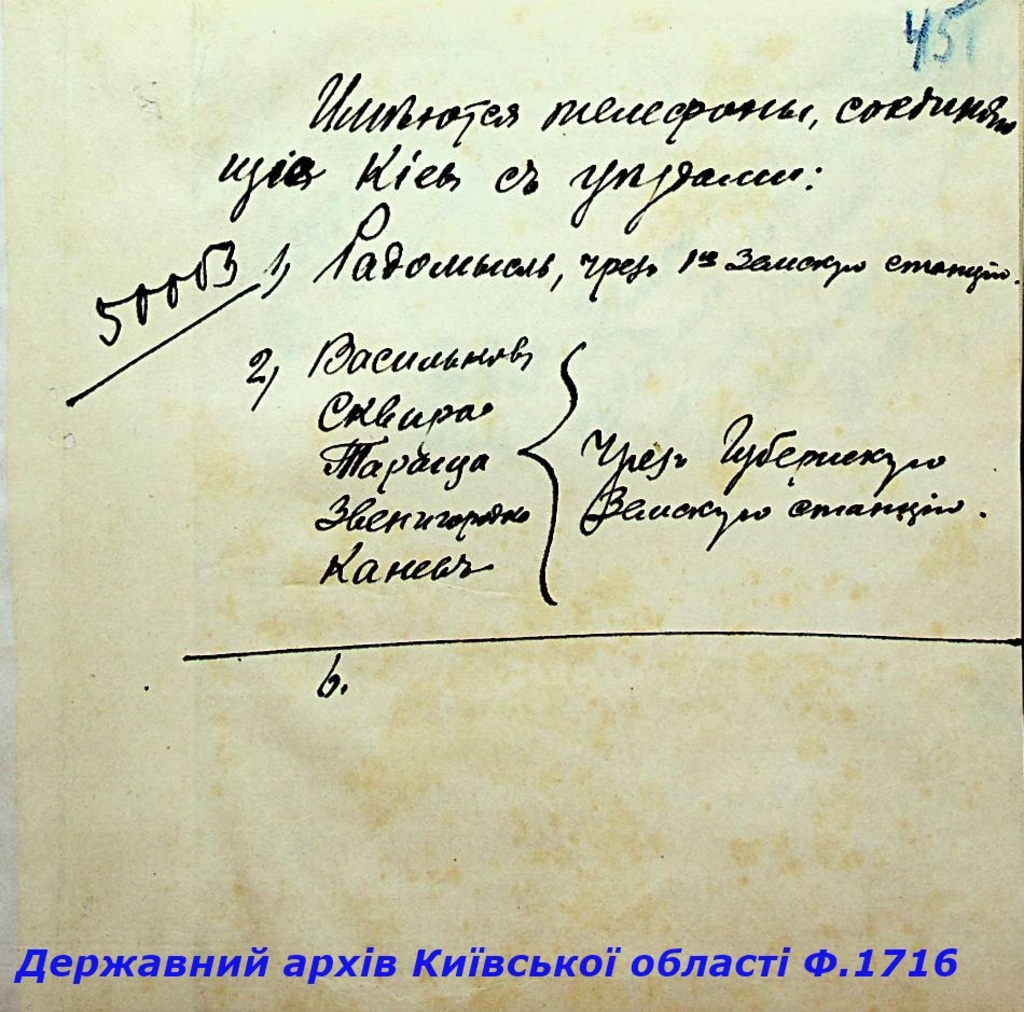 45
Имѣются телефоны, соединяю
щіе Кіевъ съ уѣздами:
1) Радомысль, чрезъ 1ую Земскую станцію.
50063
2) Васильковъ
Сквира
Тараща
Звенигородка
Каневъ
Чрезъ Губернскую
Земскую станцію.
6.
Державний архів Київської області Ф.1716